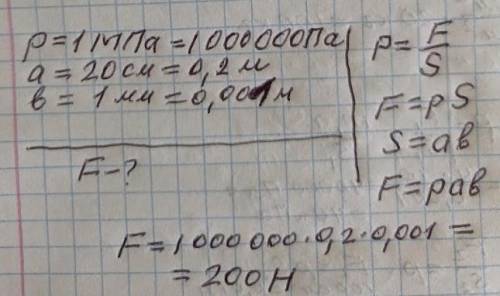 p=1МПа=1000000Па
a=20см=0,2м
в=1мм=0,001м
F-?
p=F/S
F=pS
S=aв
F=paв
F=1000000·0,2·0,001=
=200Н